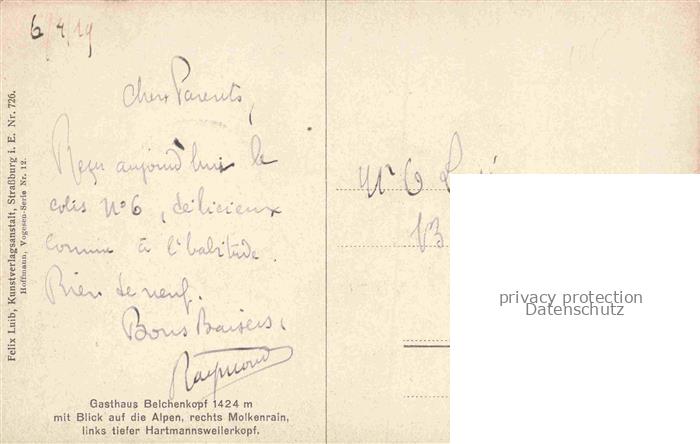 6 4 19
Chers Parents,
Reçu aujourd'hui le
colis N°6, délicieux
comme à l'habitude.
Rien de neuf.
Bons Baisers,
Raymond
Gasthaus Belchenkopf 1424 m
mit Blick auf die Alpen, rechts Molkenrain,
links tiefer Hartmannsweilerkopf.
Felix Luib, Kunstverlagsanstalt, Straßburg i. E. Nr. 726.
Hoffmann, Vogesen-Serie Nr. 12.
privacy protection
Datenschutz